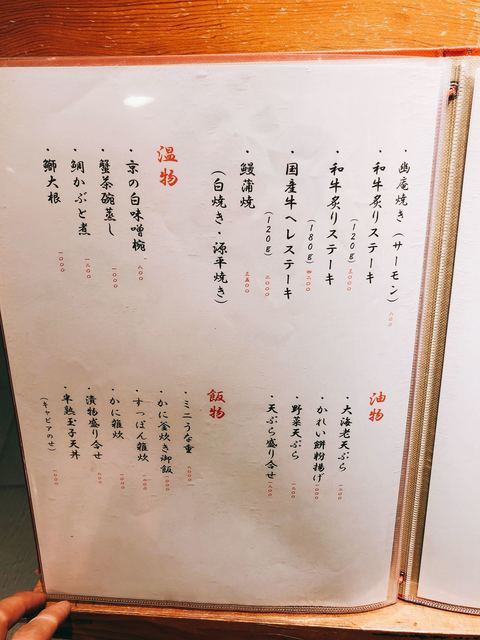 ・幽庵焼き（サーモン）
・和牛炙りステーキ
（120g）
・和牛炙りステーキ
（180g）
・国産牛ヘレステーキ
（120g）
・鰻蒲焼
（白焼き・源平焼き）
温物
・京の白味噌椀
・蟹茶碗蒸し
・鯛かぶと煮
・鰤大根
油物
・大海老天ぷら
・かれい餅粉揚げ
・野菜天ぷら
・天ぷら盛り合せ
飯物
・ミニうな重
・かに釜炊き御飯
・すっぽん雑炊
・かに雑炊
・漬物盛り合せ
・半熟玉子天丼
（キャビアのせ）